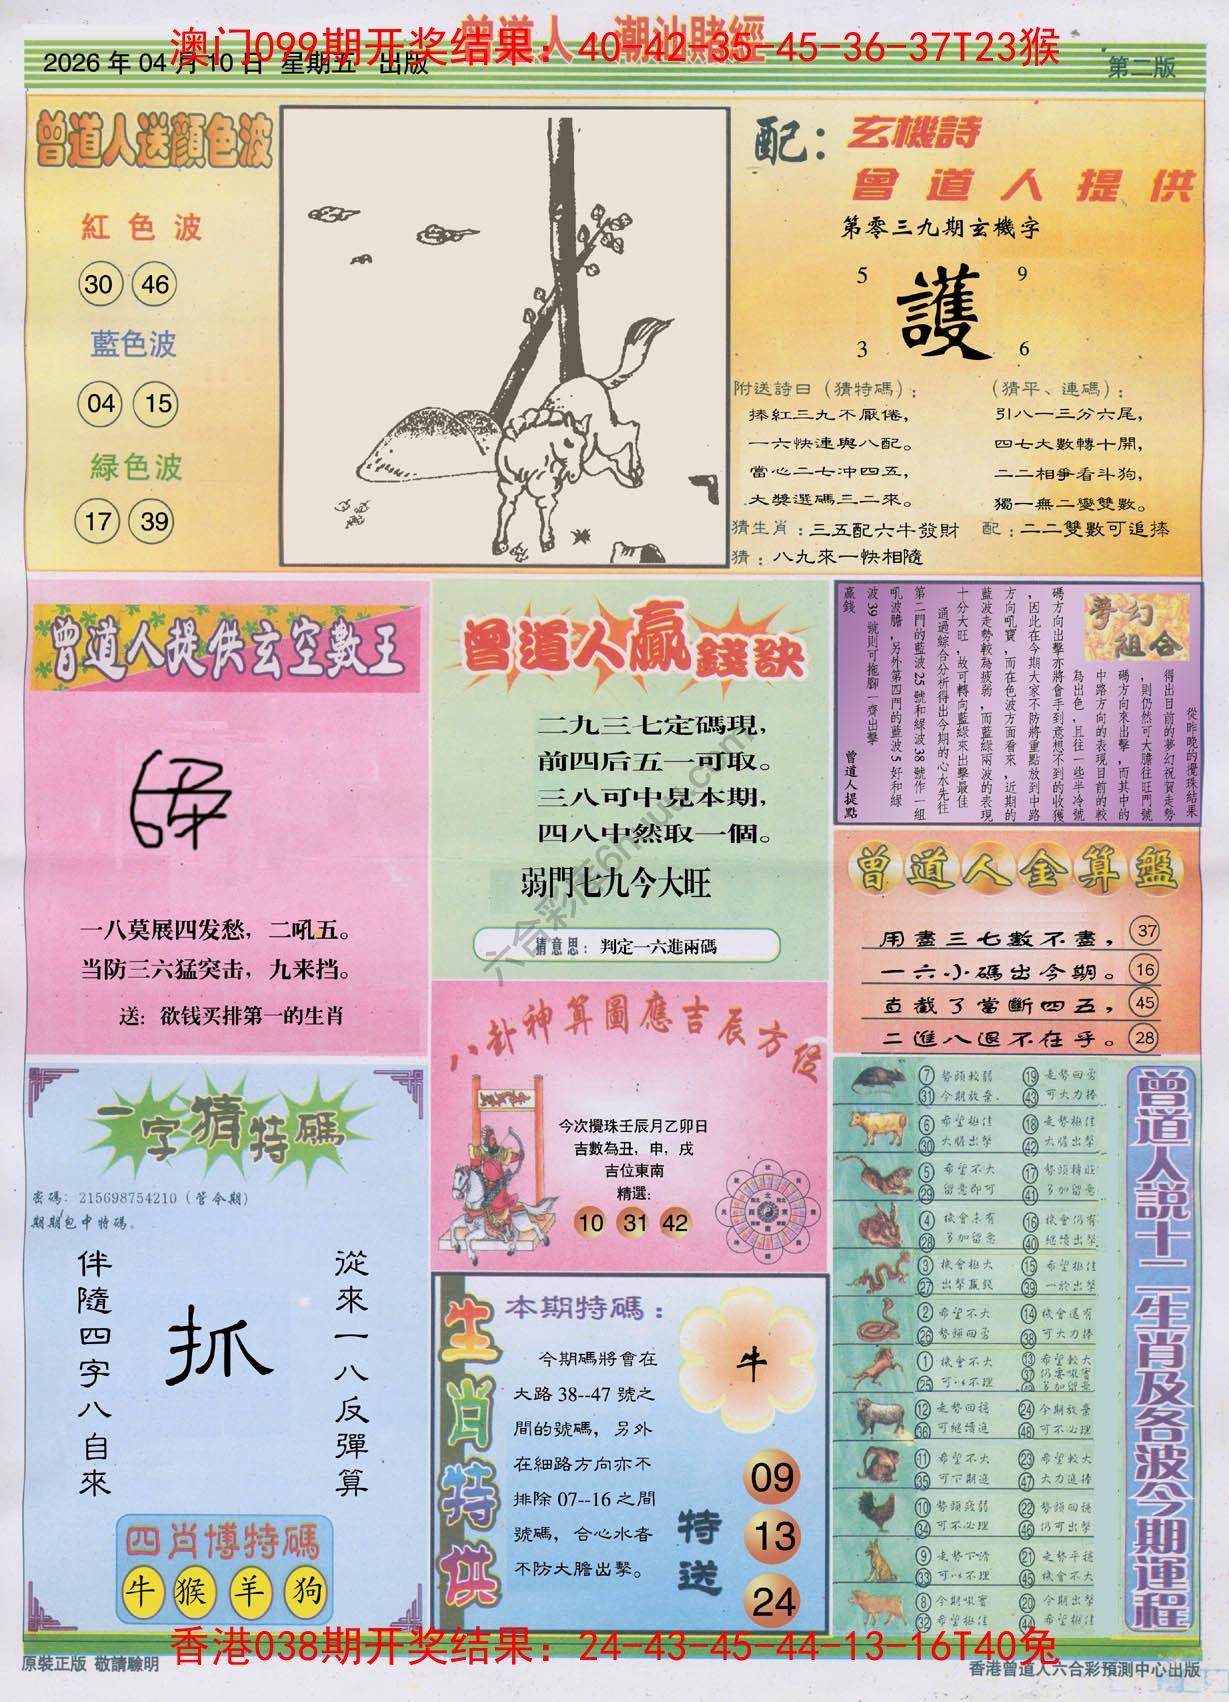 曾道人 潮汕賭經
澳门099期开奖结果：40-42-35-45-36-37T23猴
2026 年 04 月 10 日 星期五 出版
第二版
曾道人送顔色波
紅色波
30 46
藍色波
04 15
緑色波
17 39
配：玄機詩
曾道人提供
第零三九期玄機字
5 9
護
3 6
附送詩曰（猜特碼）：
捧紅三九不厭倦，
一六快連與八配。
當心二七冲四五，
大獎選碼三二來。
（猜平、連碼）：
引八一三分六尾，
四七大數轉十開，
二二相爭看斗狗，
獨一無二變雙數。
猜生肖：三五配六牛發財
配：二二雙數可追捧
猜：八九來一快相隨
曾道人提供玄空數王
一八莫展四发愁，二吼五。
当防三六猛突击，九来挡。
送：欲钱买排第一的生肖
曾道人贏錢訣
二九三七定碼現，
前四后五一可取。
三八可中見本期，
四八中然取一個。
弱門七九今大旺
猜意思：判定一六進兩碼
夢幻組合
從昨晚的攪珠結果
得出目前的夢幻祝賀走勢
，則仍然可大膽往旺門號
碼方向來出擊，而其中的
中路方向的表現目前的較
為出色，且往一些半冷號
碼方向出擊亦將會手到意想不到的收獲
，因此在今期大家不防將重點放到中路
方向吼寶，而在色波方面看來，近期的
藍波走勢較為疲弱，而藍緑兩波的表現
十分大旺，故可轉向藍緑來出擊最佳
通過綜合分析得出今期的心水先往
第二門的藍波25號和緑波38號作一組
吼波膽，另外第四門的藍波5好和緑
波39號則可拖腳一齊出擊
贏錢
曾道人提點
曾道人金算盤
用盡三七數不盡， 37
一六小碼出今期。 16
直截了當斷四五， 45
二進八退不在乎。 28
八卦神算圖應吉辰方位
今次攪珠壬辰月乙卯日
吉數為丑，申，戌
吉位東南
精選：
10 31 42
一字猜特碼
密碼：215698754210（管令期）
期期包中特碼。
從來一八反彈算
抓
伴隨四字八自來
四肖博特碼
牛 猴 羊 狗
生肖特供
本期特碼：
今期碼將會在
大路 38--47 號之
間的號碼，另外
在細路方向亦不
排除 07--16 之間
號碼，合心水者
不防大膽出擊。
牛
特送
09
13
24
曾道人説十二生肖及各波今期運程
7 勢頭較弱 19 走勢回勇
31 今期放棄 43 可大力捧
6 希望極佳 18 走勢極佳
30 大膽出擊 42 大膽出擊
5 希望不大 17 勢頭轉旺
29 留意即可 41 多加留意
4 機會未有 16 機會仍有
28 多加留意 40 繼續出擊
3 機會極大 15 希望極佳
27 出擊贏錢 39 一於出擊
2 希望不大 14 機會還有
26 勢頭回勇 38 可大力捧
1 機會不大 13 希望較大
25 可以不理 37 仍要吼實
49 多加留意
12 走勢回穩 24 今期放棄
36 可繼續追 48 可不必理
11 希望不大 23 希望較大
35 可下期追 47 大力追捧
10 勢頭疲弱 22 勢頭回穩
34 可不必理 46 仍可出擊
9 走勢下滑 21 走勢平穩
33 可以不理 45 機會不大
8 今期吼實 20 今期出擊
32 希望極佳 44 希望極佳
香港038期开奖结果：24-43-45-44-13-16T40兔
原裝正版 敬請驗明
香港曾道人六合彩預測中心出版